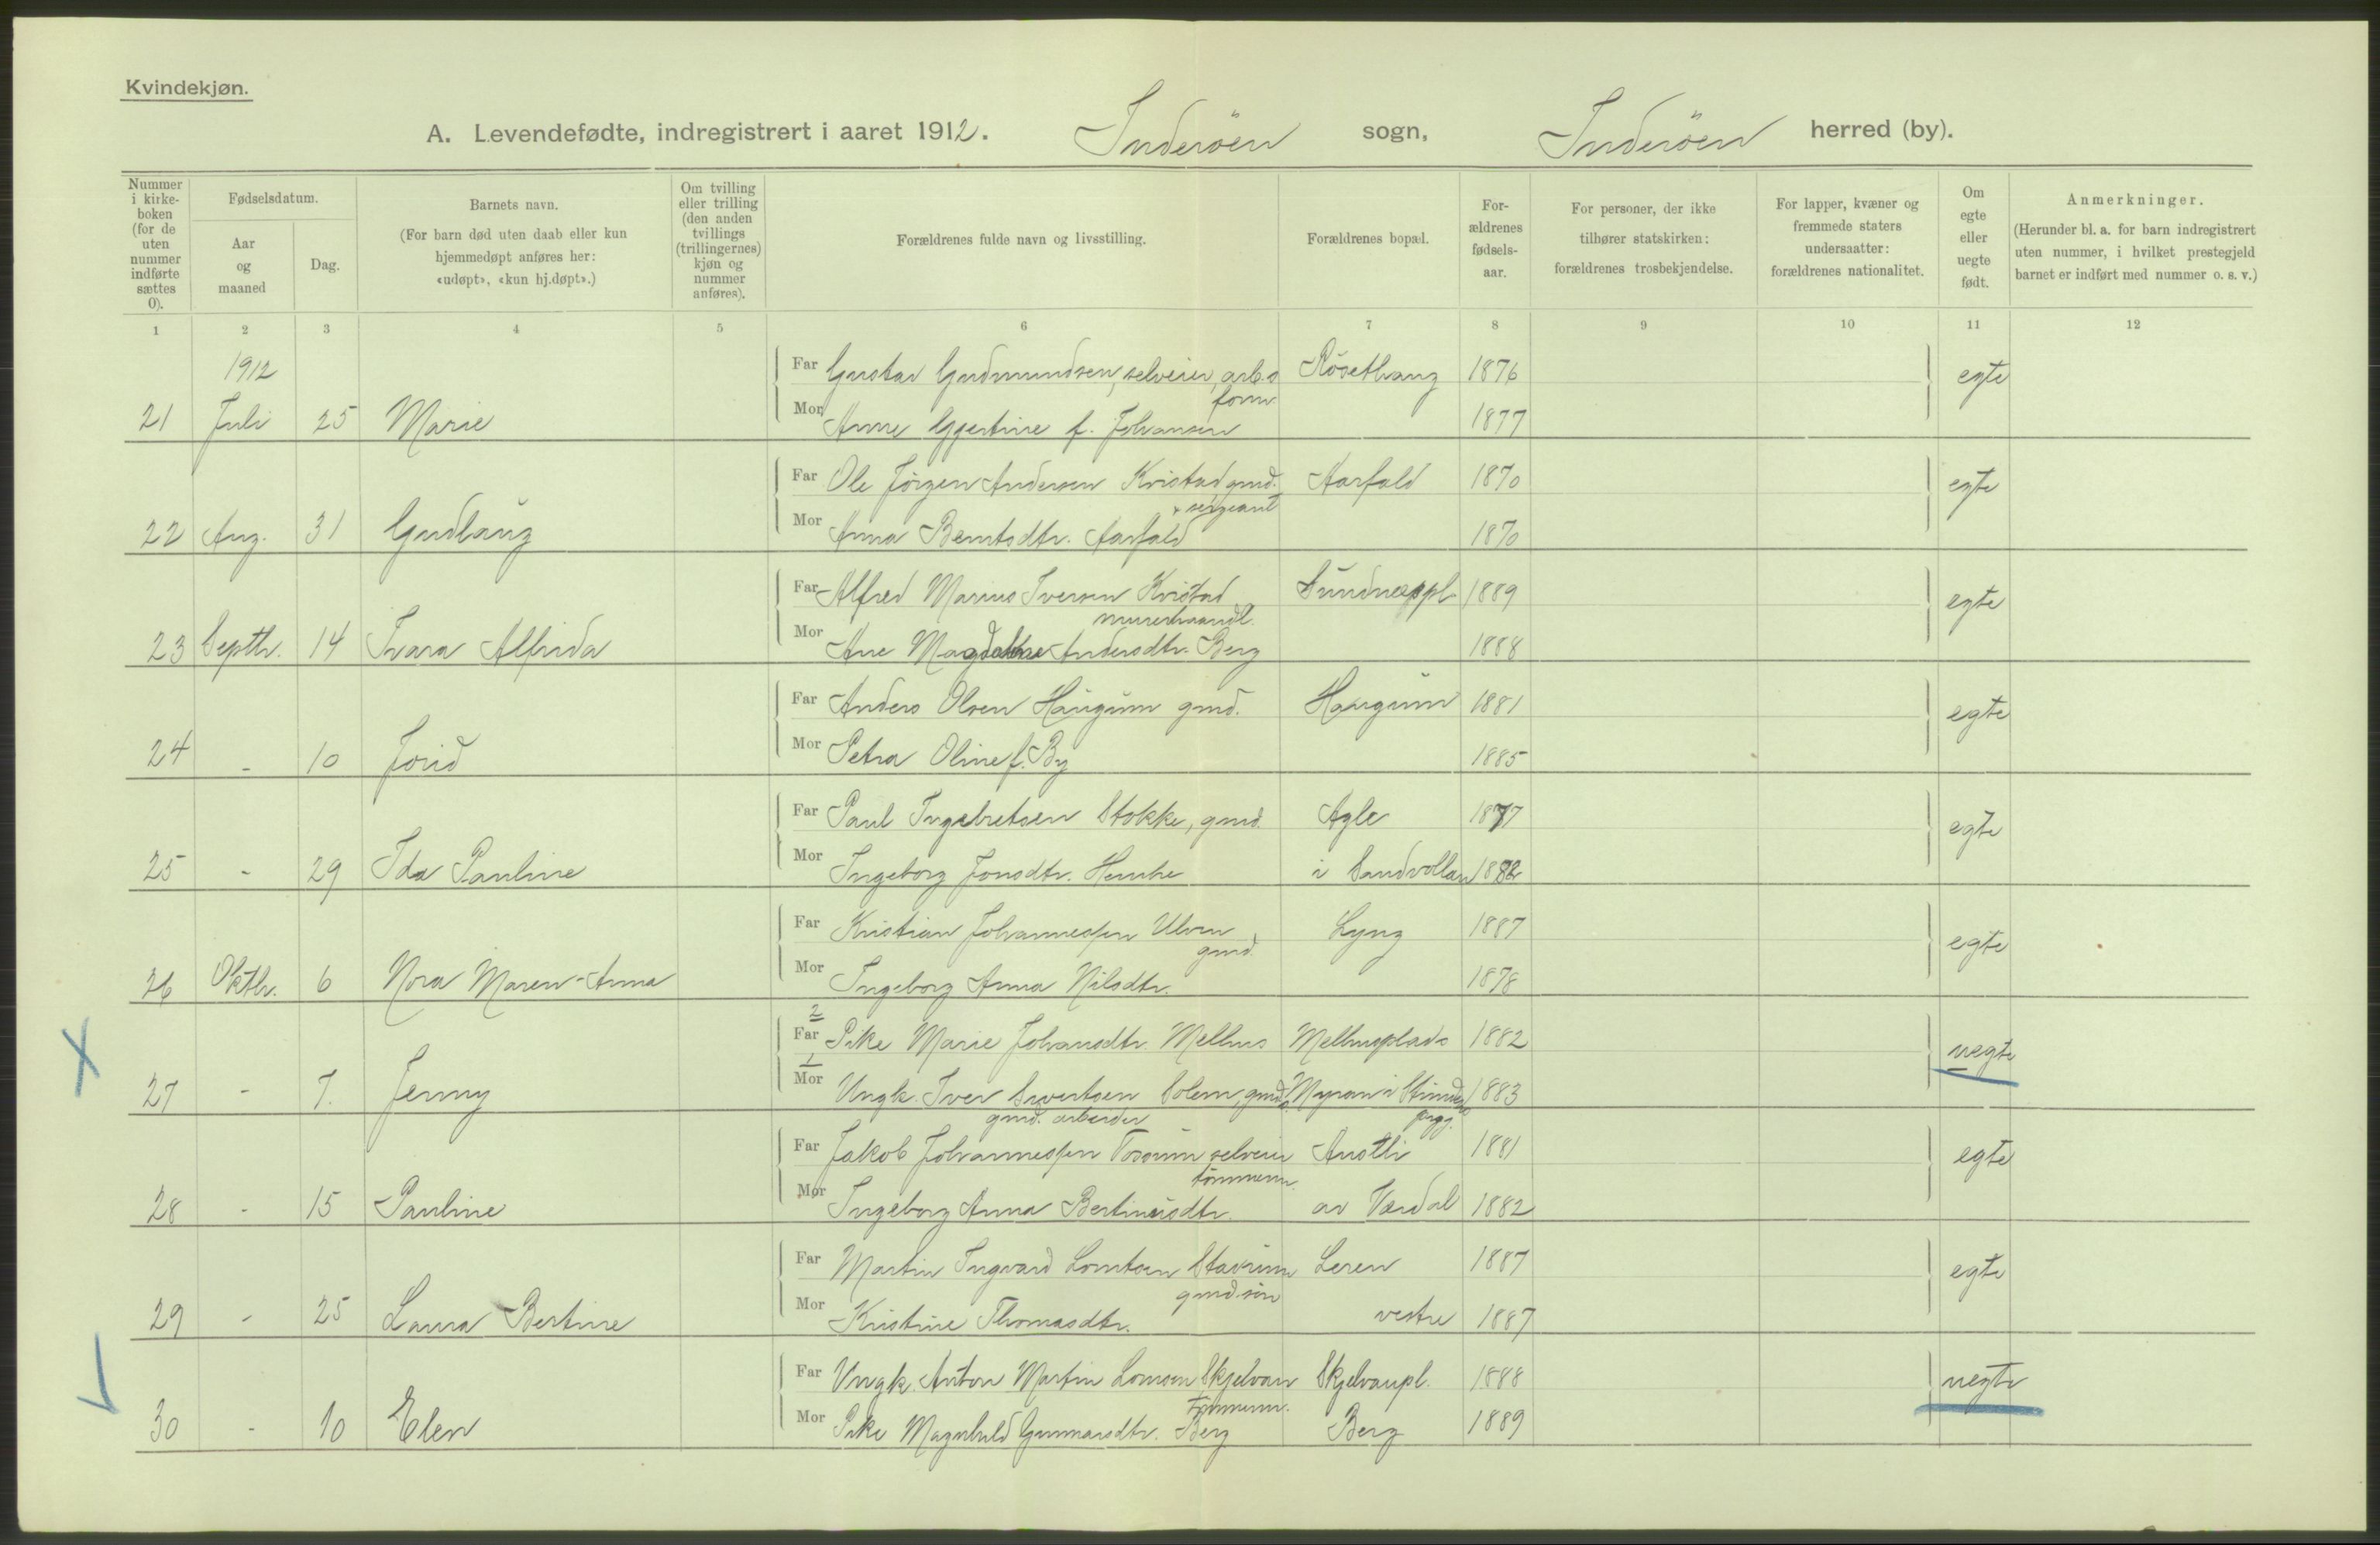 Kvindekjøn.
A. Levendefødte, indregistrert i aaret 1912. Inderöen sogn, Inderöen herred (by).
Nummer i kirke-boken (for de uten nummer indførte sættes 0).
Fødselsdatum.
Aar og maaned
Dag.
Barnets navn.
(For barn død uten daab eller kun hjemmedøpt anføres her: «udøpt», «kun hj.døpt».)
Om tvilling eller trilling (den anden tvillings (trillingernes) kjøn og nummer anføres).
Forældrenes fulde navn og livsstilling.
Forældrenes bopæl.
For-ældrenes fødsels-aar.
For personer, der ikke tilhører statskirken: forældrenes trosbekjendelse.
For lapper, kvæner og fremmede staters undersaatter: forældrenes nationalitet.
Om egte eller uegte født.
Anmerkninger.
(Herunder bl. a. for barn indregistrert uten nummer, i hvilket prestegjeld barnet er indført med nummer o. s. v.)
1 2 3 4 5 6 7 8 9 10 11 12
1912
Far Gustav Gudmundsen, selveier, arb.s Rösethaug 1876 egte
form.
21 Juli 25 Marie Mor Anne Ggertine f. Johansen 1877
Far Ole Jörgen Andersen Kristad gmd. Aarfald 1870 egte
+ sergeant
22 Aug. 31 Gudlaug Mor Anna Berntsdtr. Aarfald 1870
Far Alfred Marius Iversen Kristad Sundnæspl. 1889 egte
murerhaandl.
23 Septbr. 14 Ivara Alfrida Mor Ane Magdalene Andersdtr. Berg 1888
Far Anders Olsen Haugum gmd. Haugum 1881 egte
24 - 10 Jorid Mor Petra Oline f. By 1885
Far Paul Ingebretsen Stokke, gmd. Agle 1877 egte
25 - 29 Ida Pauline Mor Ingeborg Jonsdtr. i Sandvollan 1882
Far Kristian Johannessen Ulven Lyng 1887 egte
gmd.
26 Oktbr. 6 Nora Maren-Anna Mor Ingeborg Anna Nilsdtr. 1878
2
Far Pike Marie Johansdtr. Melhus Melhusplads 1882 uegte
1
27 - 7. Jenny Mor Ungk. Iver Sivertsen Solem, gmds Myran i 1883
gmd. arbeider
Far Jakob Johannessen selveier Austli 1881 egte
tömmerm.
28 - 15 Pauline Mor Ingeborg Anna Bertinusdtr. av Værdal 1882
Far Martin Ingvard Lorntsen Stavrum Leren 1887 egte
gmd.sön
29 - 25 Laura Bertine Mor Kristine Thomasdtr. vestre 1887
Far Ungk. Anton Martin Skjelvan Skjelvanpl. 1888 uegte
Tömmerm.
30 - 10 Elen Mor Pike Magnhild Gunnarsdtr. Berg Berg 1889